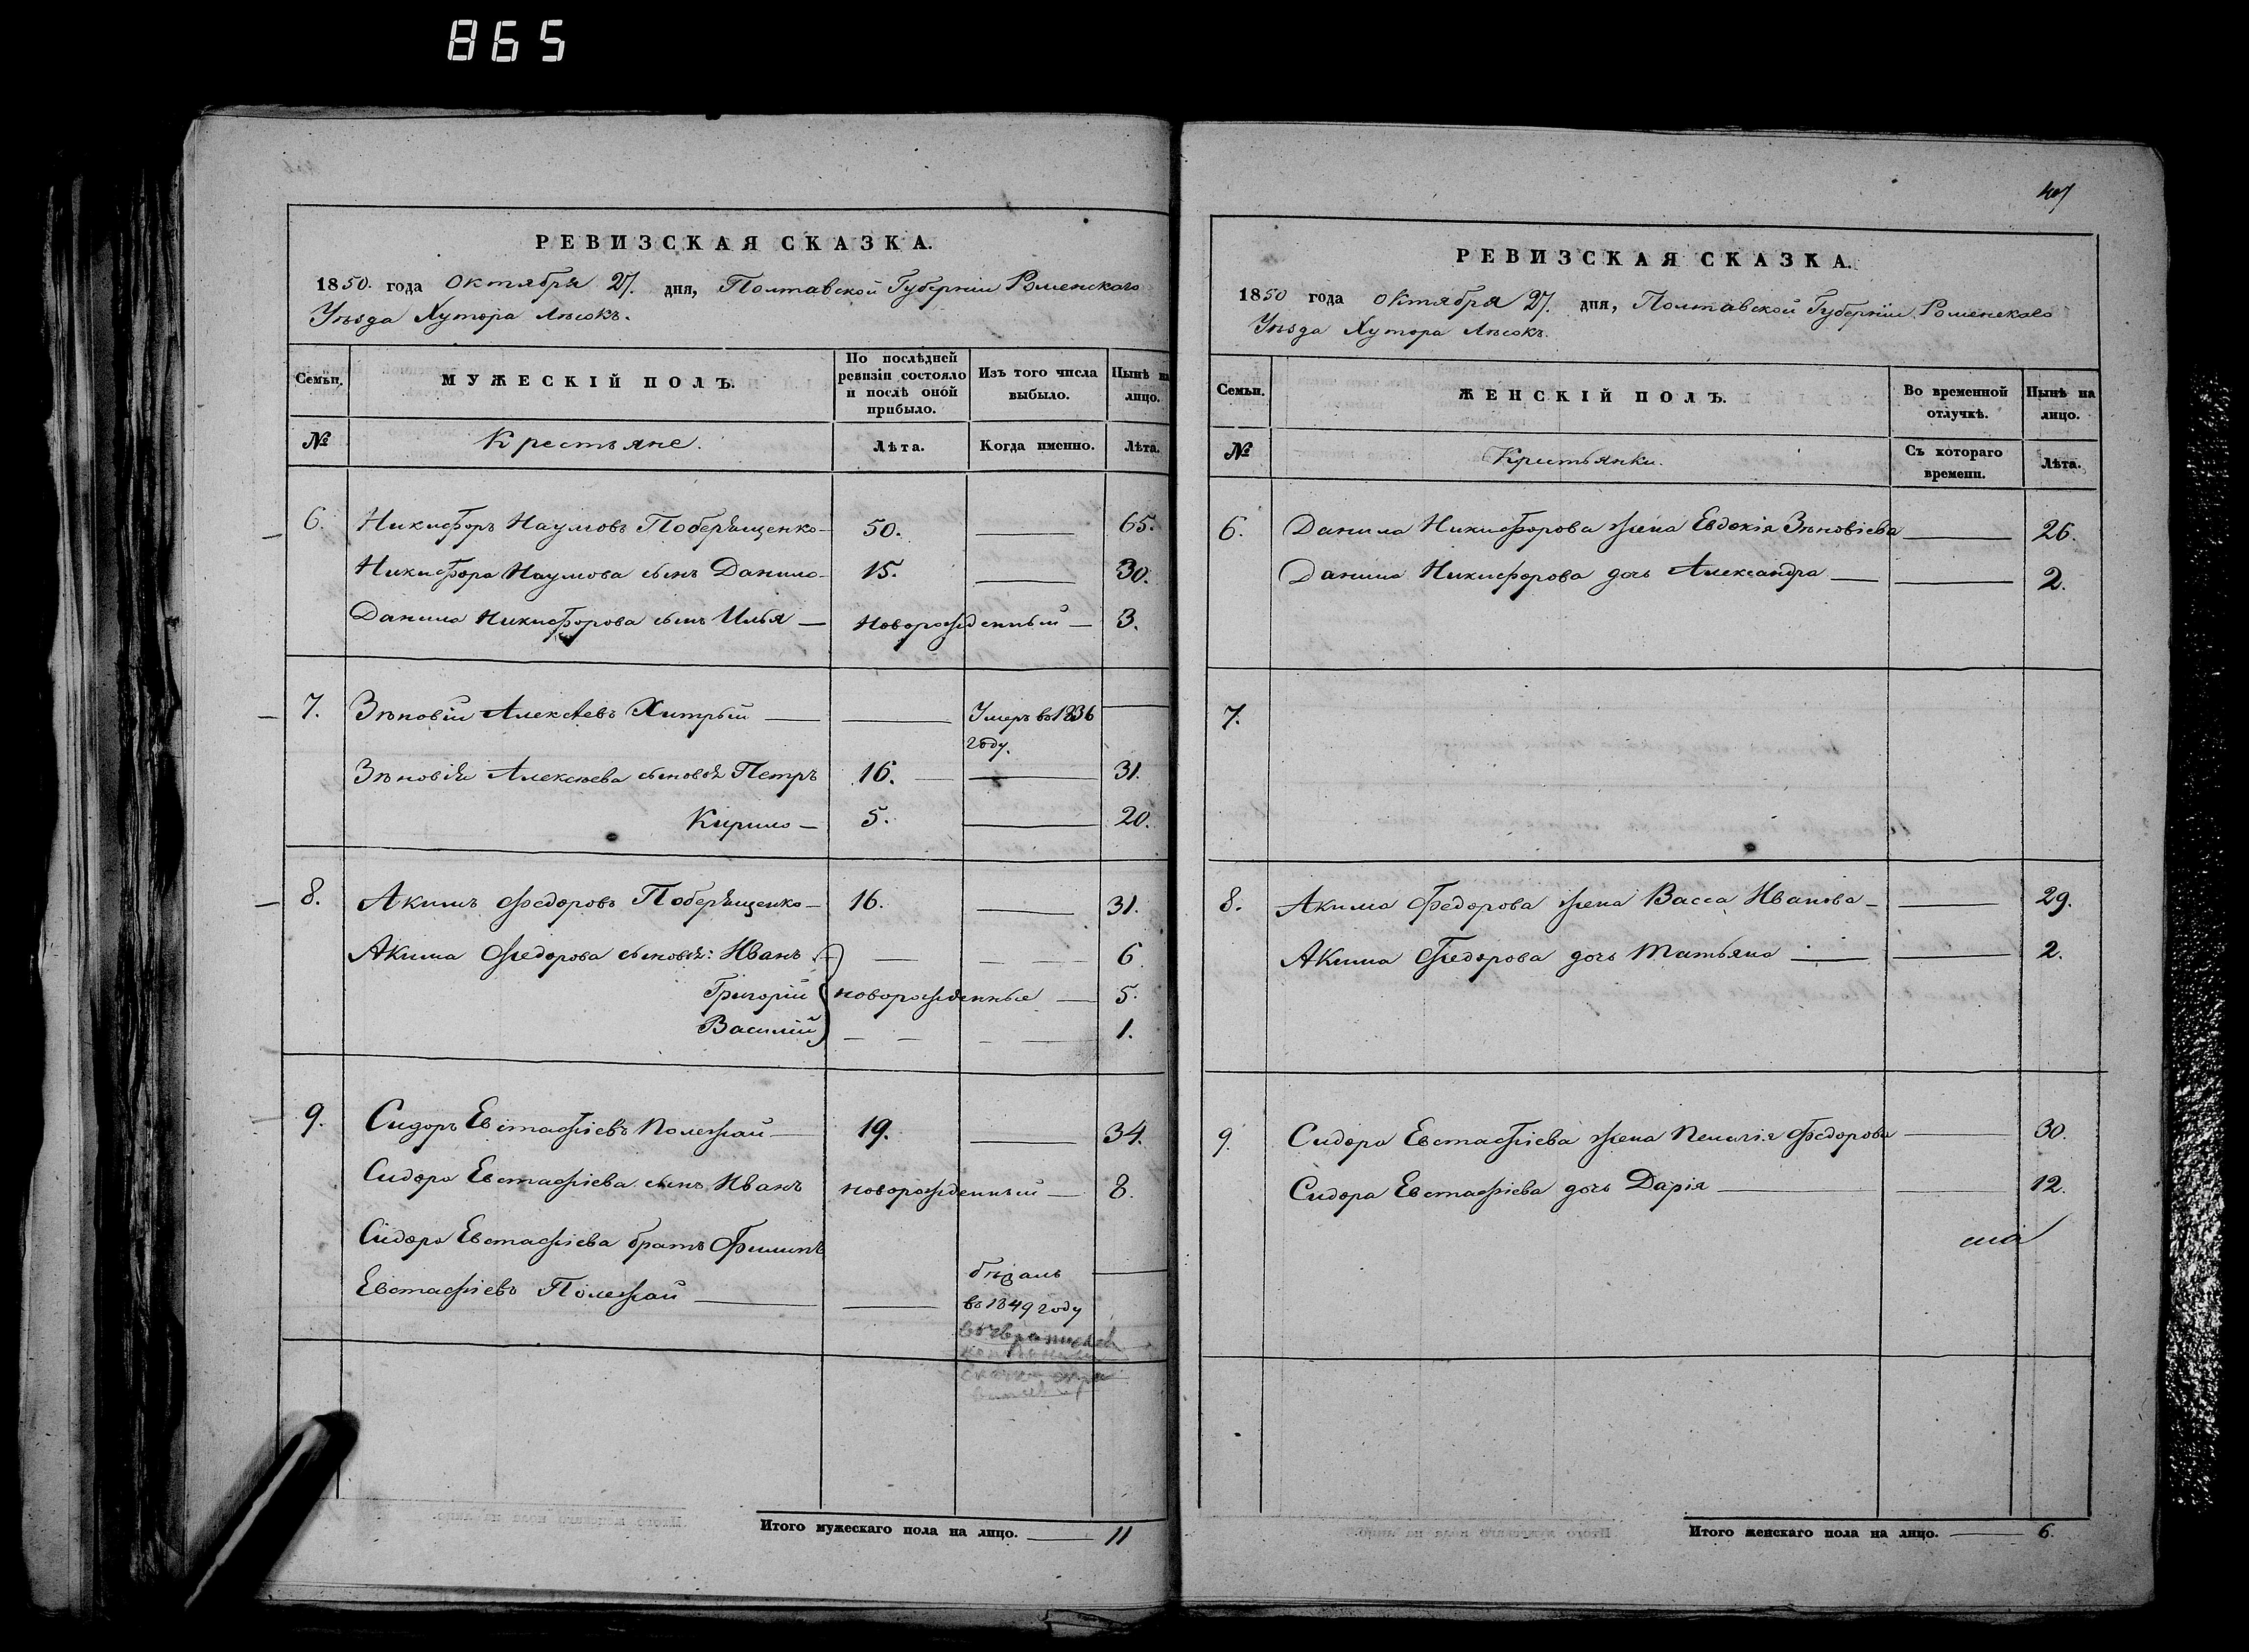 865
РЕВИЗСКАЯ СКАЗКА.
1850. года Октября 27. дня, Полтавской Губерніи Роменскаго
Уѣзда Хутора Лѣсокъ.
Семьи.
МУЖЕСКІЙ ПОЛЪ.
По послѣдней ревизіи состояло и послѣ оной прибыло.
Изъ того числа выбыло.
Нынѣ на лицо.
№
Крестьяне.
Лѣта.
Когда именно.
Лѣта.
6. Никифоръ Наумовъ 50. 65.
Никифора Наумова сынъ Данило 15. 30.
Данила Никифорова сынъ Илья — новорожденный — 3.
7. Зѣновій Алексѣевъ Хитрый — Умеръ въ 1836
году.
Зѣновія Алексѣева сыновья Петръ 16. 31.
Кирило — 5. 20.
8. Акимъ Федоровъ 16. 31.
Акима Федорова сыновья: Иванъ 6.
Григорій новорожденные — 5.
Василій 1.
9. Сидоръ Евстафіевъ Полежай — 19. 34.
Сидора Евстафіева сынъ Иванъ новорожденный — 8.
Сидора Евстафіева братъ Филипъ
Евстафіевъ Полежай — бѣжалъ
въ 1849 году
Итого мужескаго пола на лицо. — 11
407
РЕВИЗСКАЯ СКАЗКА.
1850 года октября 27. дня, Полтавской Губерніи Роменскаго
Уѣзда Хутора Лѣсокъ.
Семьи.
ЖЕНСКІЙ ПОЛЪ.
Во временной отлучкѣ.
Нынѣ на лицо.
№
Крестьянки.
Съ котораго времени.
Лѣта.
6. Данила Никифорова жена Евдокія Зѣновіева — 26.
Данила Никифорова дочь Александра — 2.
7.
8. Акима Федорова жена Васса Иванова — 29.
Акима Федорова дочь Татьяна — 2.
9. Сидора Евстафіева жена Пелагія Федорова — 30.
Сидора Евстафіева дочь Дарія — 12.
Итого женскаго пола на лицо. — 6.